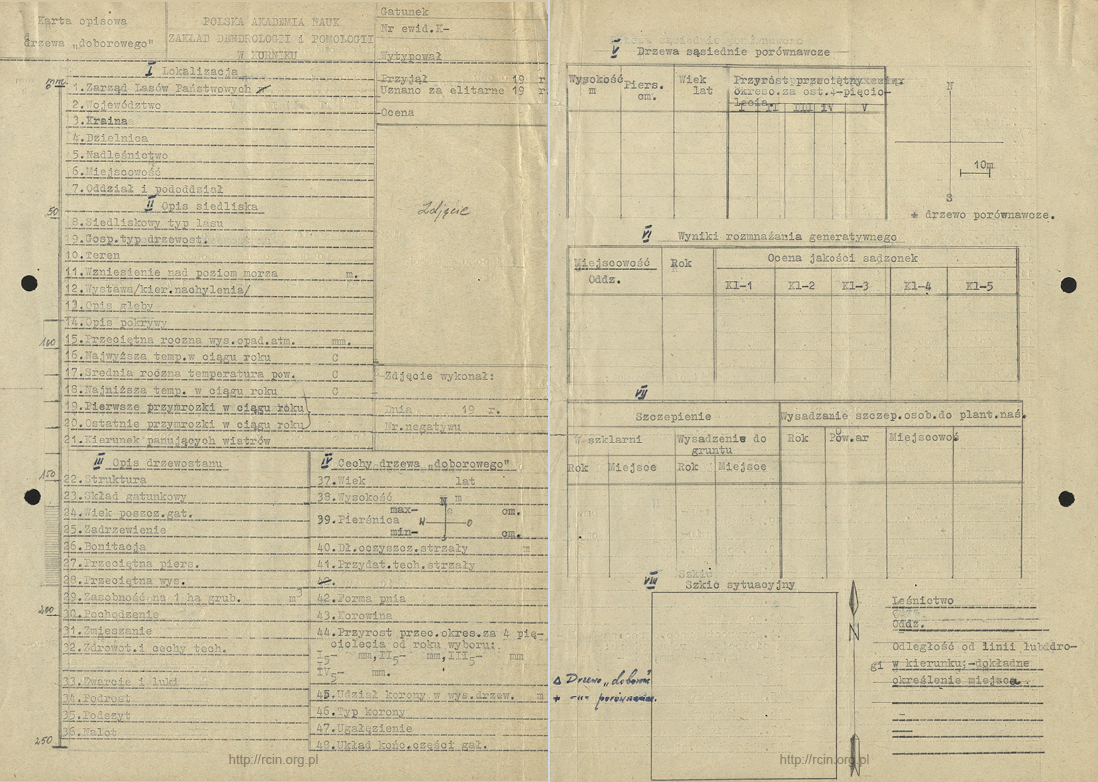 Karta opisowa
drzewa „doborowego"
POLSKA AKADEMIA NAUK
ZAKŁAD DENDROLOGII i POMOLOGII
W KÓRNIKU
Gatunek
Nr ewid.K-
Wytypował
Przyjął 19 r
Uznano za elitarne 19 r
Ocena
I Lokalizacja
1.Zarząd Lasów Państwowych
2.Województwo
3.Kraina
4.Dzielnica
5.Nadleśnictwo
6.Miejscowość
7.Oddział i pododdział
50
II Opis siedliska
8.Siedliskowy typ lasu
9.Gosp.typ drzewost.
10.Teren
11.Wzniesienie nad poziom morza m.
12.Wystawa/kier.nachylenia/
13.Opis gleby
14.Opis pokrywy
100
15.Przeciętna roczna wys.opad.atm. mm.
16.Najwyższa temp.w ciągu roku C
17.Średnia roczna temperatura pow. C
18.Najniższa temp. w ciągu roku C
19.Pierwsze przymrozki w ciągu roku
20.Ostatnie przymrozki w ciągu roku
21.Kierunek panujących wiatrów
Zdjęcie
Zdjęcie wykonał:
Dnia 19 r.
Nr.negatywu
150
III Opis drzewostanu
22.Struktura
23.Skład gatunkowy
24.Wiek poszcz.gat.
25.Zadrzewienie
26.Bonitacja
27.Przeciętna piers.
28.Przeciętna wys.
29.Zasobność na 1 ha grub. m
200
30.Pochodzenie
31.Zmieszanie
32.Zdrowot.i cechy tech.
33.Zwarcie i luki
34.Podrost
35.Podszyt
36.Nalot
250
IV Cechy drzewa „doborowego"
37.Wiek lat
38.Wysokość m
N
max- cm.
39.Pierśnica W O
min- cm.
40.Dł.oczyszcz.strzały m
41.Przydat.tech.strzały
42.Forma pnia
43.Korowina
44.Przyrost przec.okres.za 4 pię-
ciolecia od roku wyboru:
I5- mm,II5- mm,III5- mm
IV5- mm.
45.Udział korony w wys.drzew. m
46.Typ korony
47.Ugałęzienie
48.Układ końc.części gał.
http://rcin.org.pl
V Drzewa sąsiednie porównawcze
Wysokość m
Piers. cm.
Wiek lat
Przyrost przeciętny
okreso.za ost.4-pięcio-
lecia
I II III IV V
N
10m
S
* drzewo porównawcze.
VI Wyniki rozmnażania generatywnego
Miejscowość
Oddz.
Rok
Ocena jakości sadzonek
Kl-1 Kl-2 Kl-3 Kl-4 Kl-5
VII
Szczepienie
Wysadzanie szczep.osob.do plant.naś.
W szklarni
Wysadzenie do
gruntu
Rok Pow.ar Miejscowość
Rok Miejsce Rok Miejsce
VIII Szkic sytuacyjny
N
Leśnictwo
Oddz.
Odległość od linii lub dro-
gi w kierunku;-dokładne
określenie miejsca
Δ Drzewo „doborowe"
* -"- porównawcze.
http://rcin.org.pl